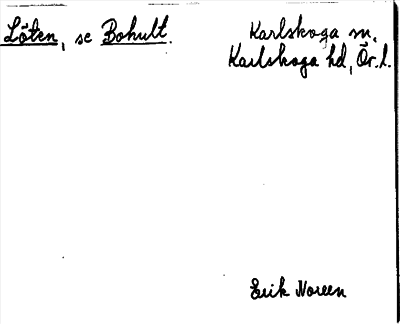 Löten, se Bohult.
Karlskoga sn.
Karlskoga hd, Ör. l.
Erik Noreen